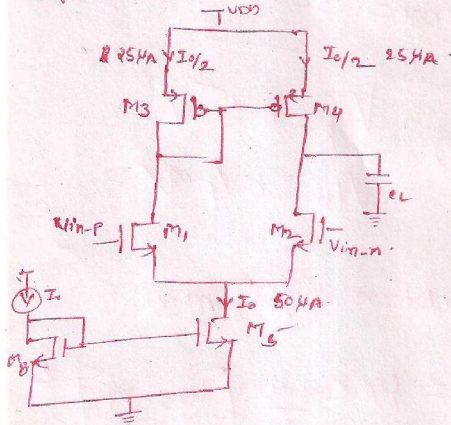 VDD
25μA
Io/2
Io/2
25μA
M3
M4
CL
Vin-p
M1
M2
Vin-n
Io
50μA
Io
M8
M5